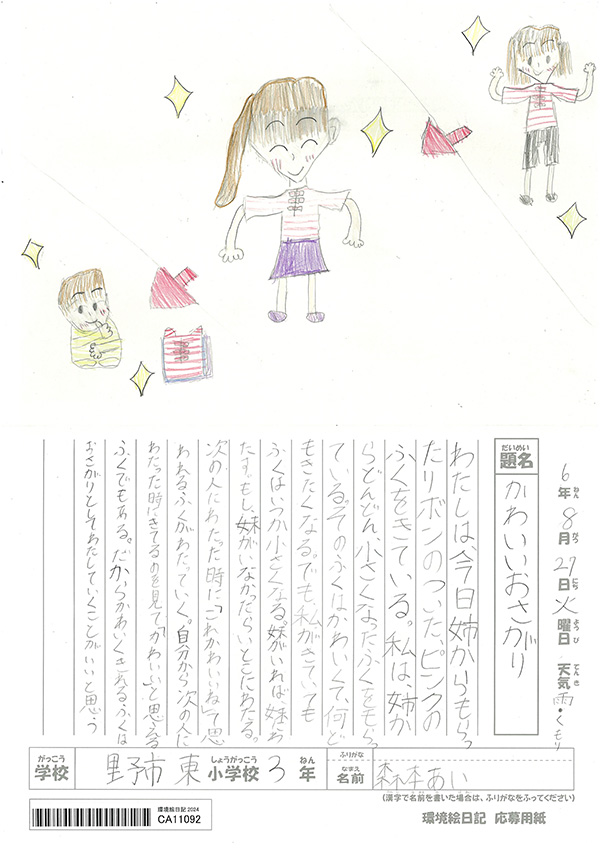 6年8月27日火曜日 天気雨・くもり
ねん がつ にち ようび てんき
だいめい
題名
かわいいおさがり
わたしは、今日姉からもらっ
たリボンのついた、ピンクの
ふくをきている。私は、姉か
らどんどん小さくなったふくをもらっ
ている。そのふくはかわいくて、何ど
もきたくなる。でも私がきて、ても
ふくはいつか小さくなる。妹がいれば、妹わ
たす。もし、妹がいなかったらいとこにわたる。
次の人にわたった時に「これかわいいね」て思
われるふくがわたっていく。自分から次の人に
わたった時にきてるのを見て「かわいい」と思える
ふくでもある。だからかわいくきれるふくは
おさがりとしてわたしていくことがいいと思う
がっこう
学校
野市東
しょうがっこう
小学校
3
ねん
年
ふりがな
なまえ
名前
森本あい
(漢字で名前を書いた場合は、ふりがなをふってください)
環境絵日記2024
CA11092
環境絵日記 応募用紙